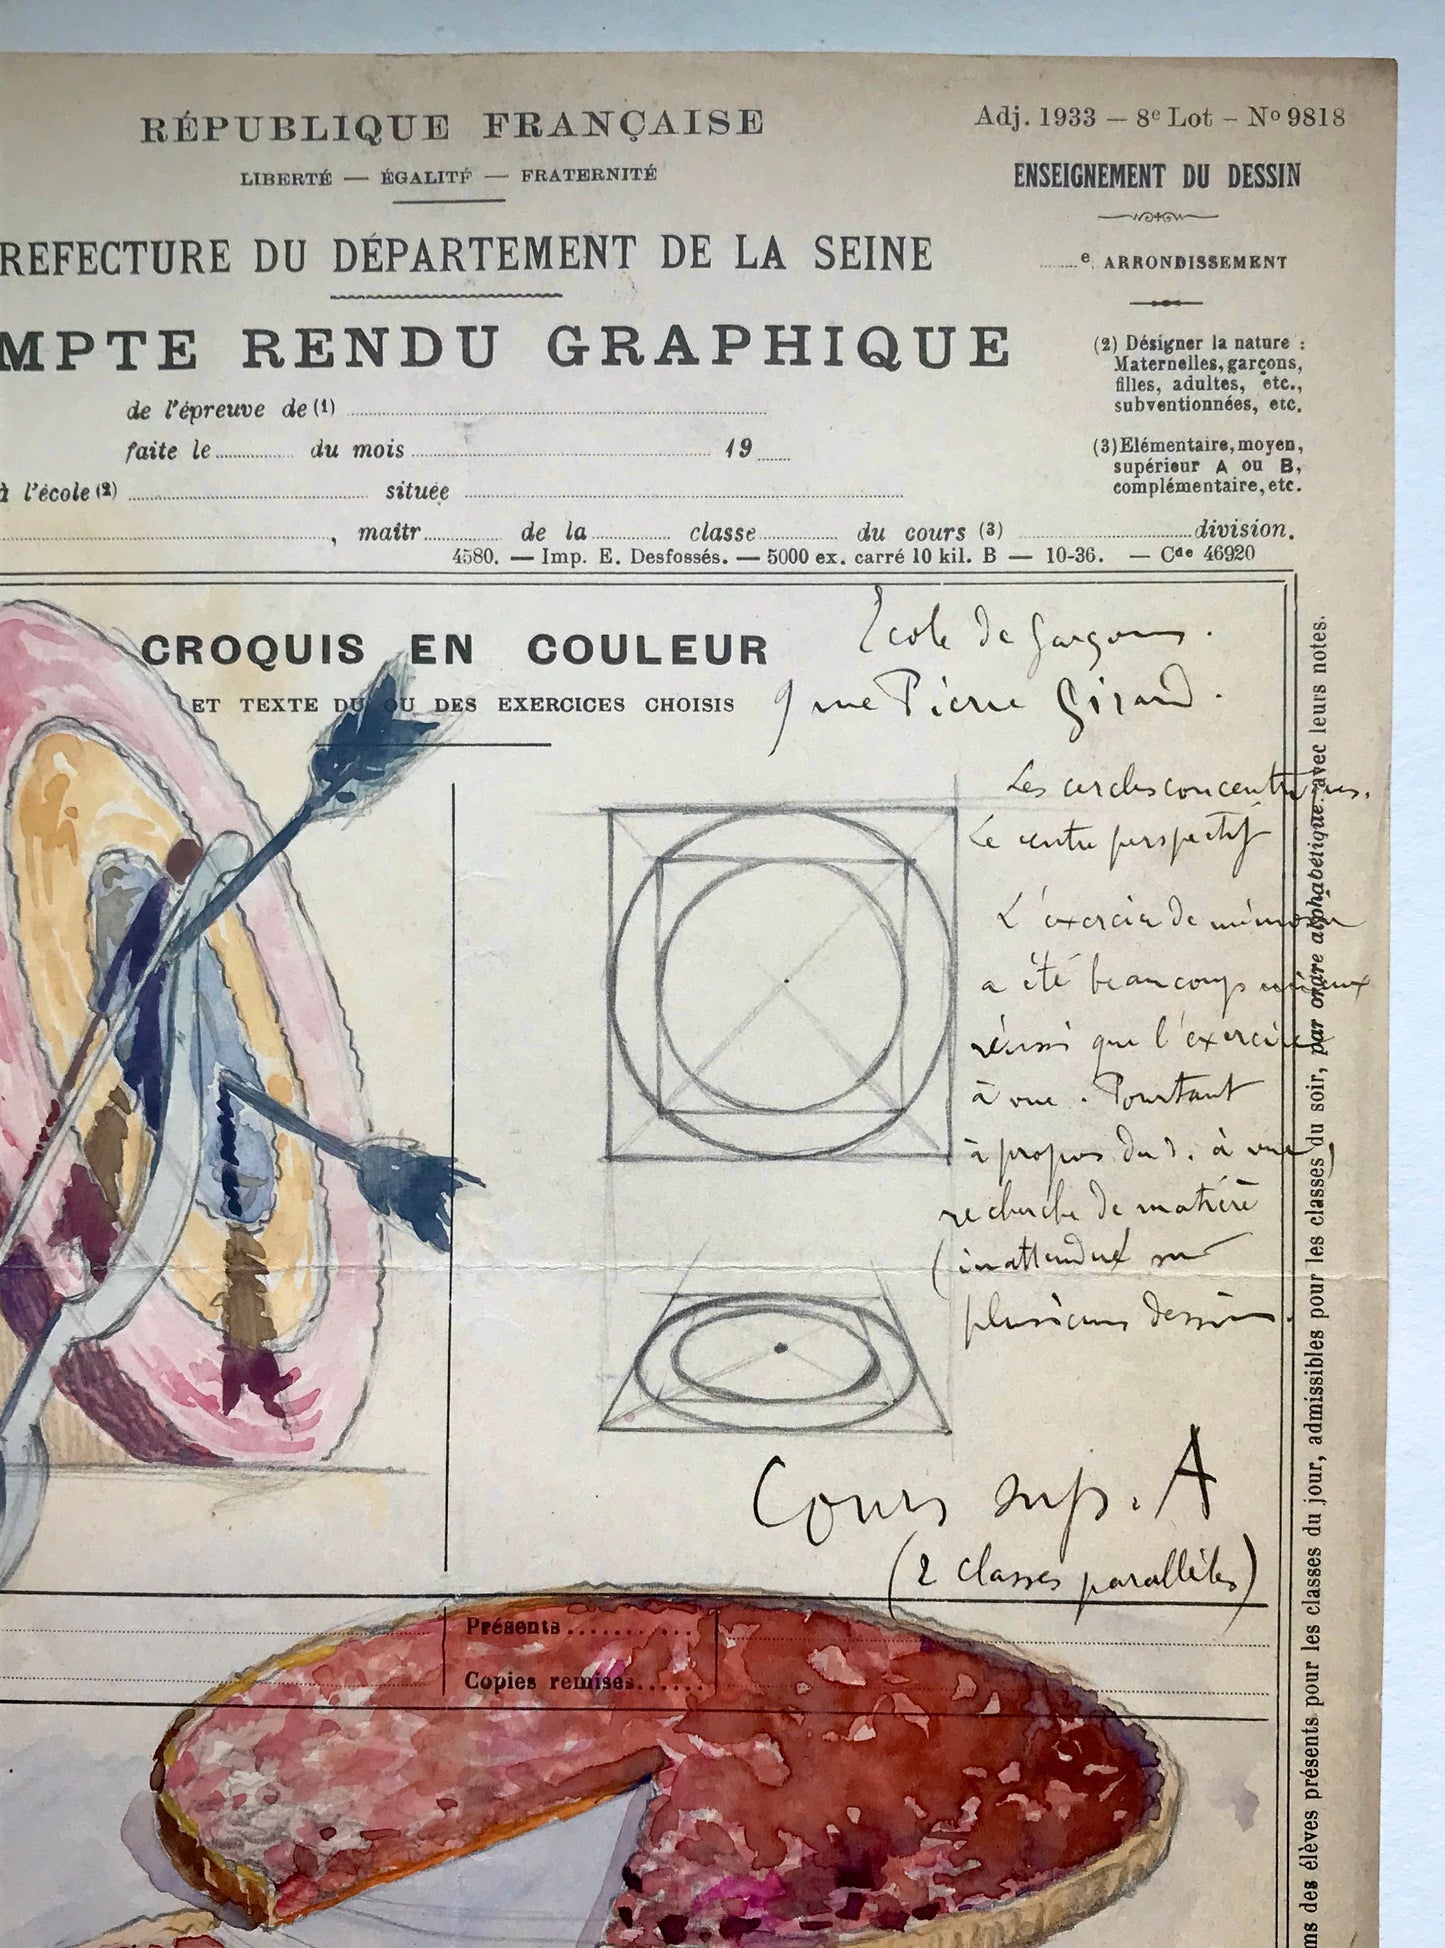 RÉPUBLIQUE FRANÇAISE
LIBERTÉ — ÉGALITÉ — FRATERNITÉ
REFECTURE DU DÉPARTEMENT DE LA SEINE
MPTE RENDU GRAPHIQUE
de l'épreuve de (1)
faite le ........ du mois ........ 19
à l'école (2) ........ située
, maîtr ........ de la ........ classe ........ du cours (3) ........ division.
4580. — Imp. E. Desfossés. — 5000 ex. carré 10 kil. B — 10-36. — Cde 46920
Adj. 1933 — 8e Lot — No 9818
ENSEIGNEMENT DU DESSIN
........e ARRONDISSEMENT
(2) Désigner la nature :
Maternelles, garçons,
filles, adultes, etc.,
subventionnées, etc.
(3) Elémentaire, moyen,
supérieur A ou B,
complémentaire, etc.
CROQUIS EN COULEUR
ET TEXTE DU OU DES EXERCICES CHOISIS
Ecole de Garçons.
9 rue Pierre Girard.
Les cercles concentriques.
Le centre perspectif
L'exercice de mémoire
a été beaucoup mieux
réussi que l'exercice
à vue. Pourtant
à propos du d. à vue,
recherche de matière
(inattendue sur
plusieurs dessins.
Cours sup. A
(2 classes parallèles)
Présents
Copies remises
ms des élèves présents pour les classes du jour, admissibles pour les classes du soir, par ordre alphabétique. avec leurs notes.